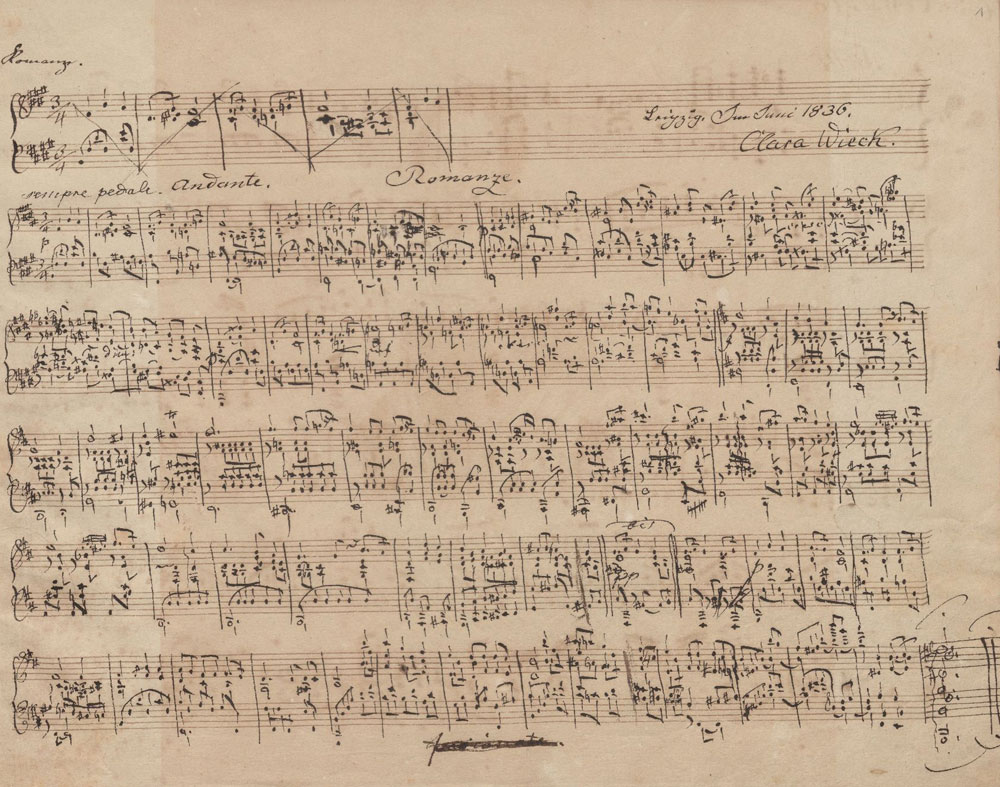 1
Romanze.
Leipzig. Im Juni 1836.
Clara Wieck.
sempre pedale. Andante. Romanze.
p
pp